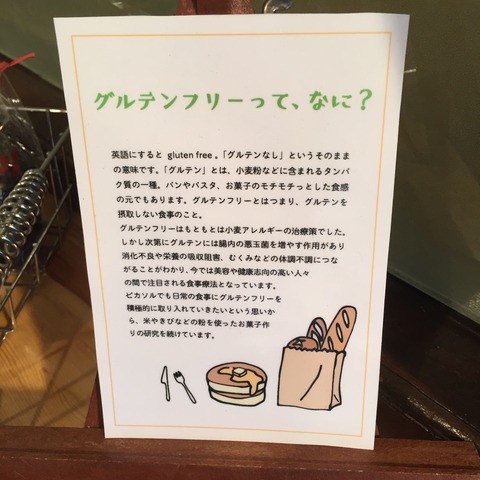 グルテンフリーって、なに？
英語にすると gluten free 。「グルテンなし」というそのまま
の意味です。「グルテン」とは、小麦粉などに含まれるタンパ
ク質の一種。パンやパスタ、お菓子のモチモチっとした食感
の元でもあります。グルテンフリーとはつまり、グルテンを
摂取しない食事のこと。
グルテンフリーはもともとは小麦アレルギーの治療策でした。
しかし次第にグルテンには腸内の悪玉菌を増やす作用があり
消化不良や栄養の吸収阻害、むくみなどの体調不調につな
がることがわかり、今では美容や健康志向の高い人々
の間で注目される食事療法となっています。
ピカソルでも日常の食事にグルテンフリーを
積極的に取り入れていきたいという思いか
ら、米やきびなどの粉を使ったお菓子作
りの研究を続けています。